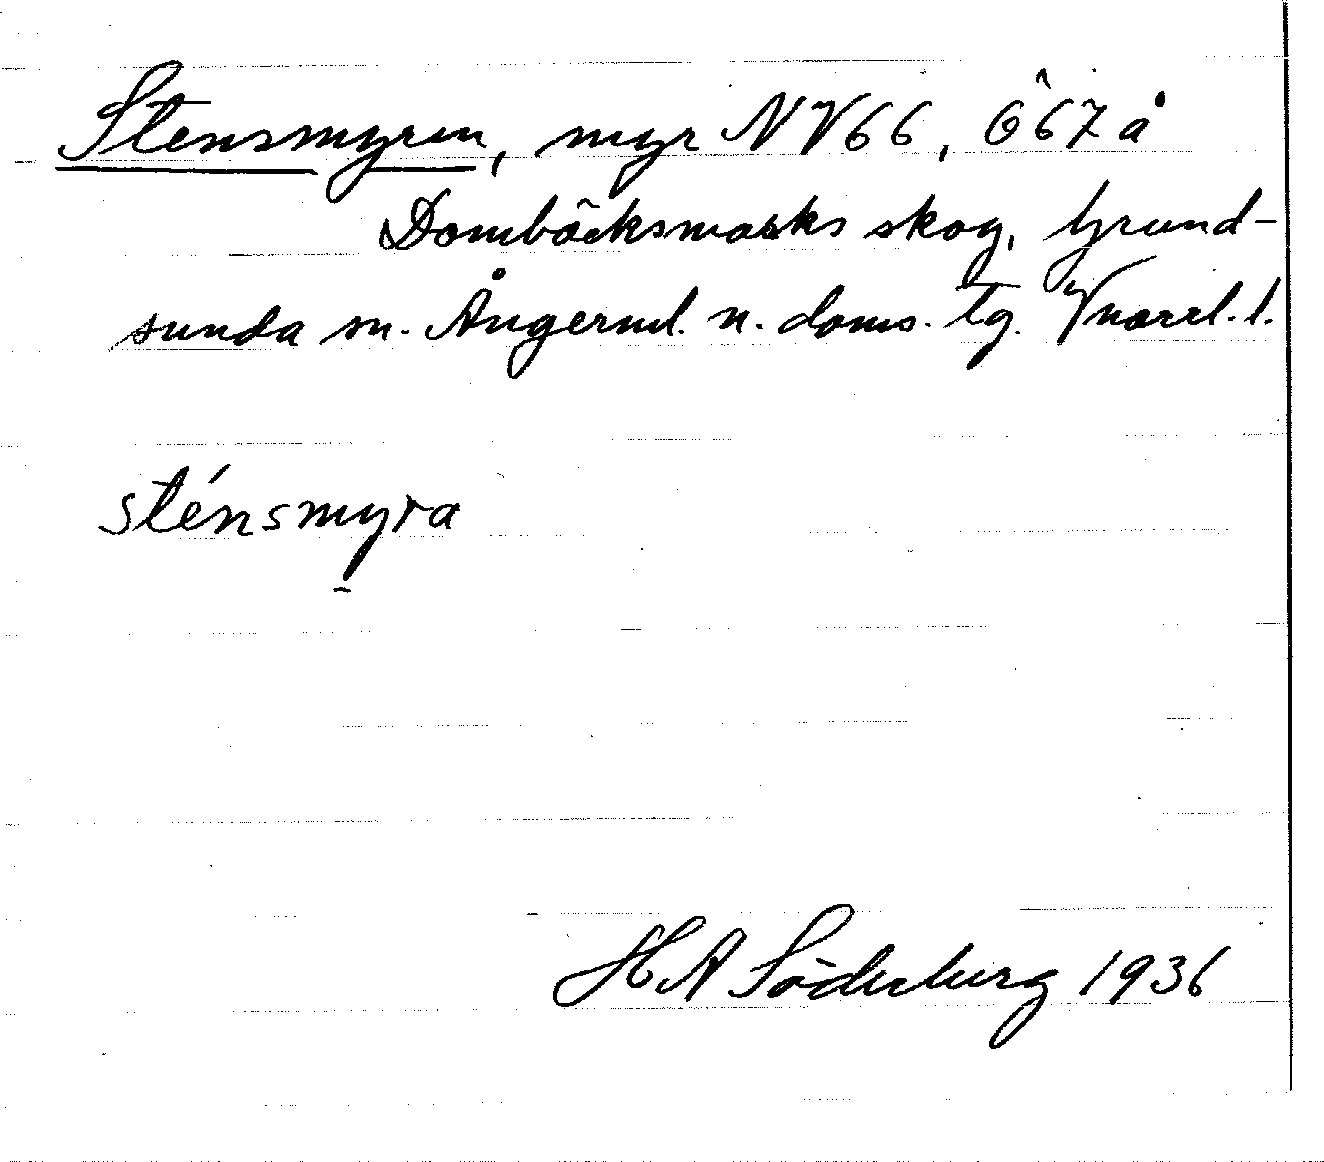 Stensmyren, myr NV66, Ö67 å
Dombäcksmarks skog, Grund-
sunda sn. Ångerml. n. doms. tg. Vnorrl. l.
sténsmyra
HA Söderberg 1936